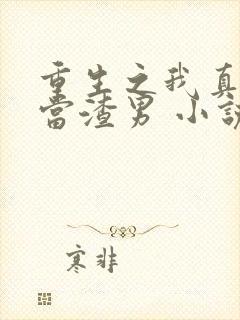 重生之我真
當渣男 小說
寒非